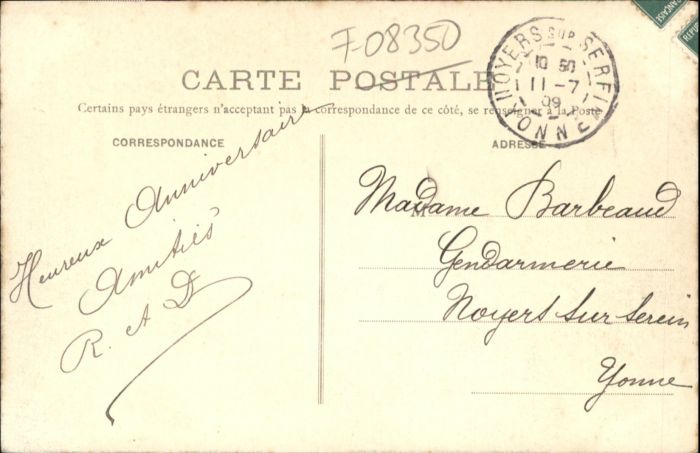 F08350
CARTE POSTALE
Certains pays étrangers n'acceptant pas la correspondance de ce côté, se renseigner à la Poste
CORRESPONDANCE
ADRESSE
NOYERS SUR SEREIN
10 50
11-7
09
YONNE
Heureux Anniversaire
Amitiés
R. et D
M
Madame Barbeaud
Gendarmerie
Noyers sur Serein
Yonne